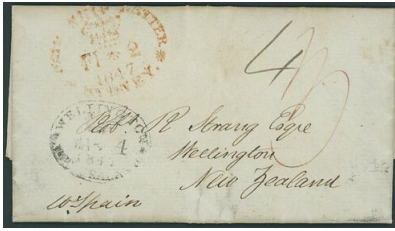 SHIP LETTER
2
1847
SYDNEY
4
WELLINGTON
4
Robt. R Strang Esqre
Wellington
New Zealand
Wm. Spain